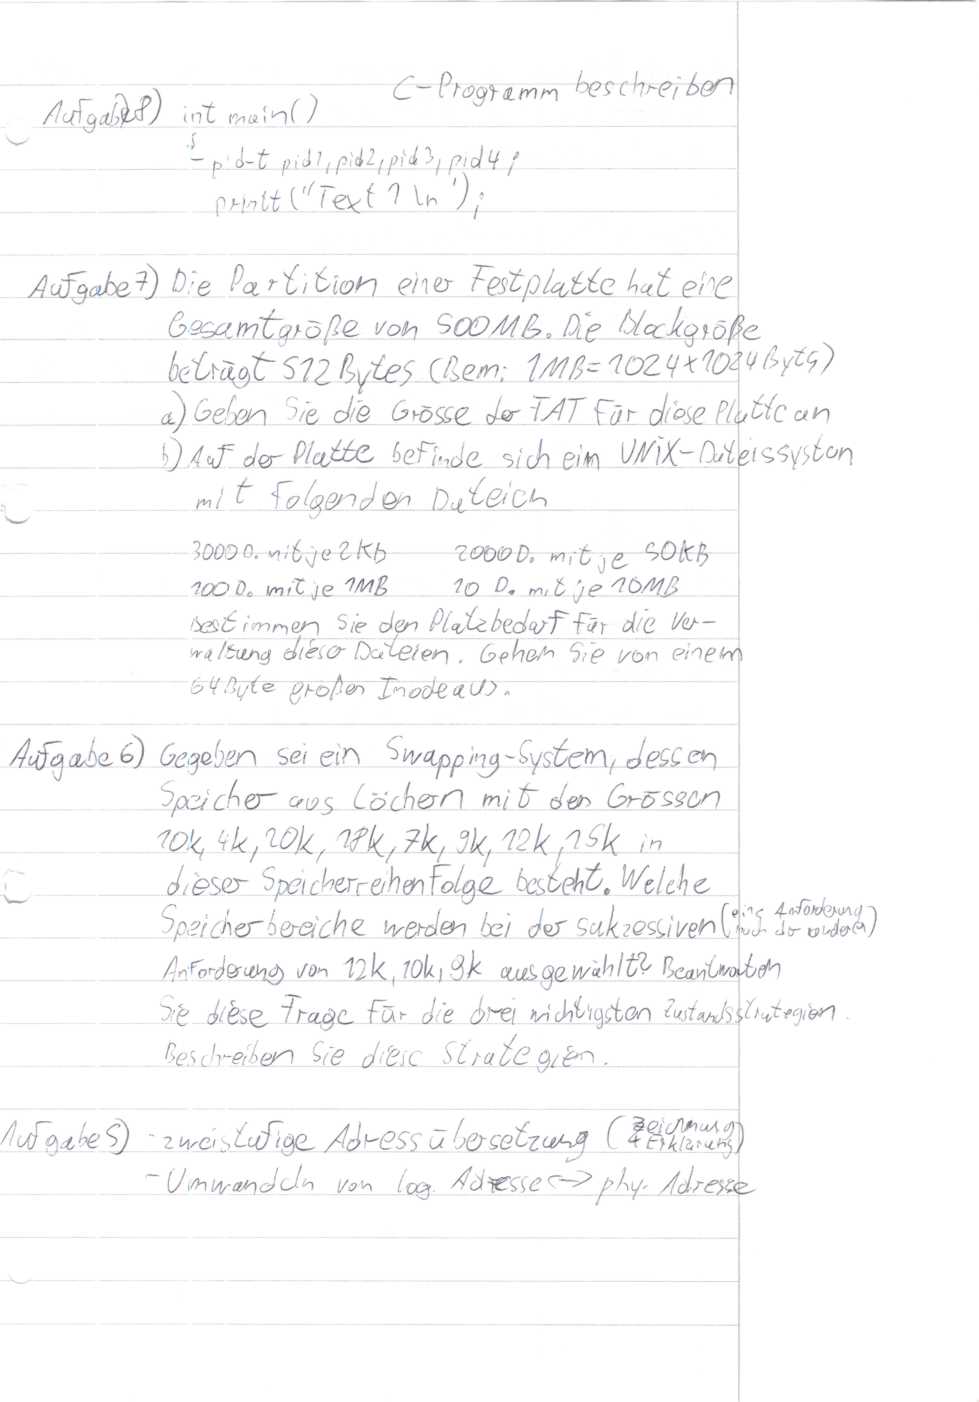 C-Programm beschreiben
Aufgabe 8) int main()
{
- pid-t pid1, pid2, pid3, pid4;
printf("Text 1 \n");
Aufgabe 7) Die Partition einer Festplatte hat eine
Gesamtgröße von 500MB. Die Blockgröße
beträgt 512 Bytes (Bem: 1MB = 1024 x 1024 Bytes)
a) Geben Sie die Grösse der FAT für diese Platte an
b) Auf der Platte befinde sich eim UNIX-Dateissystem
mit folgenden Dateien
3000 D. mit je 2Kb 2000 D. mit je 50KB
100 D. mit je 1MB 10 D. mit je 10MB
Bestimmen Sie den Platzbedarf für die Ver-
waltung dieser Dateien. Gehen Sie von einem
64Byte großen Inode aus.
Aufgabe 6) Gegeben sei ein Swapping-System, dessen
Speicher aus Löchern mit den Grössen
10k, 4k, 20k, 18k, 7k, 9k, 12k, 15k in
dieser Speicherreihenfolge besteht. Welche
Speicherbereiche werden bei der sukzessiven (eine Anforderung nach der anderen)
Anforderung von 12k, 10k, 9k ausgewählt? Beantworten
Sie diese Frage für die drei wichtigsten Zustandsstrategien.
Beschreiben Sie diese Strategien.
Aufgabe 5) - zweistufige Adressübersetzung (Zeichnung + Erklärung)
- Umwandeln von log. Adresse <-> phy. Adresse